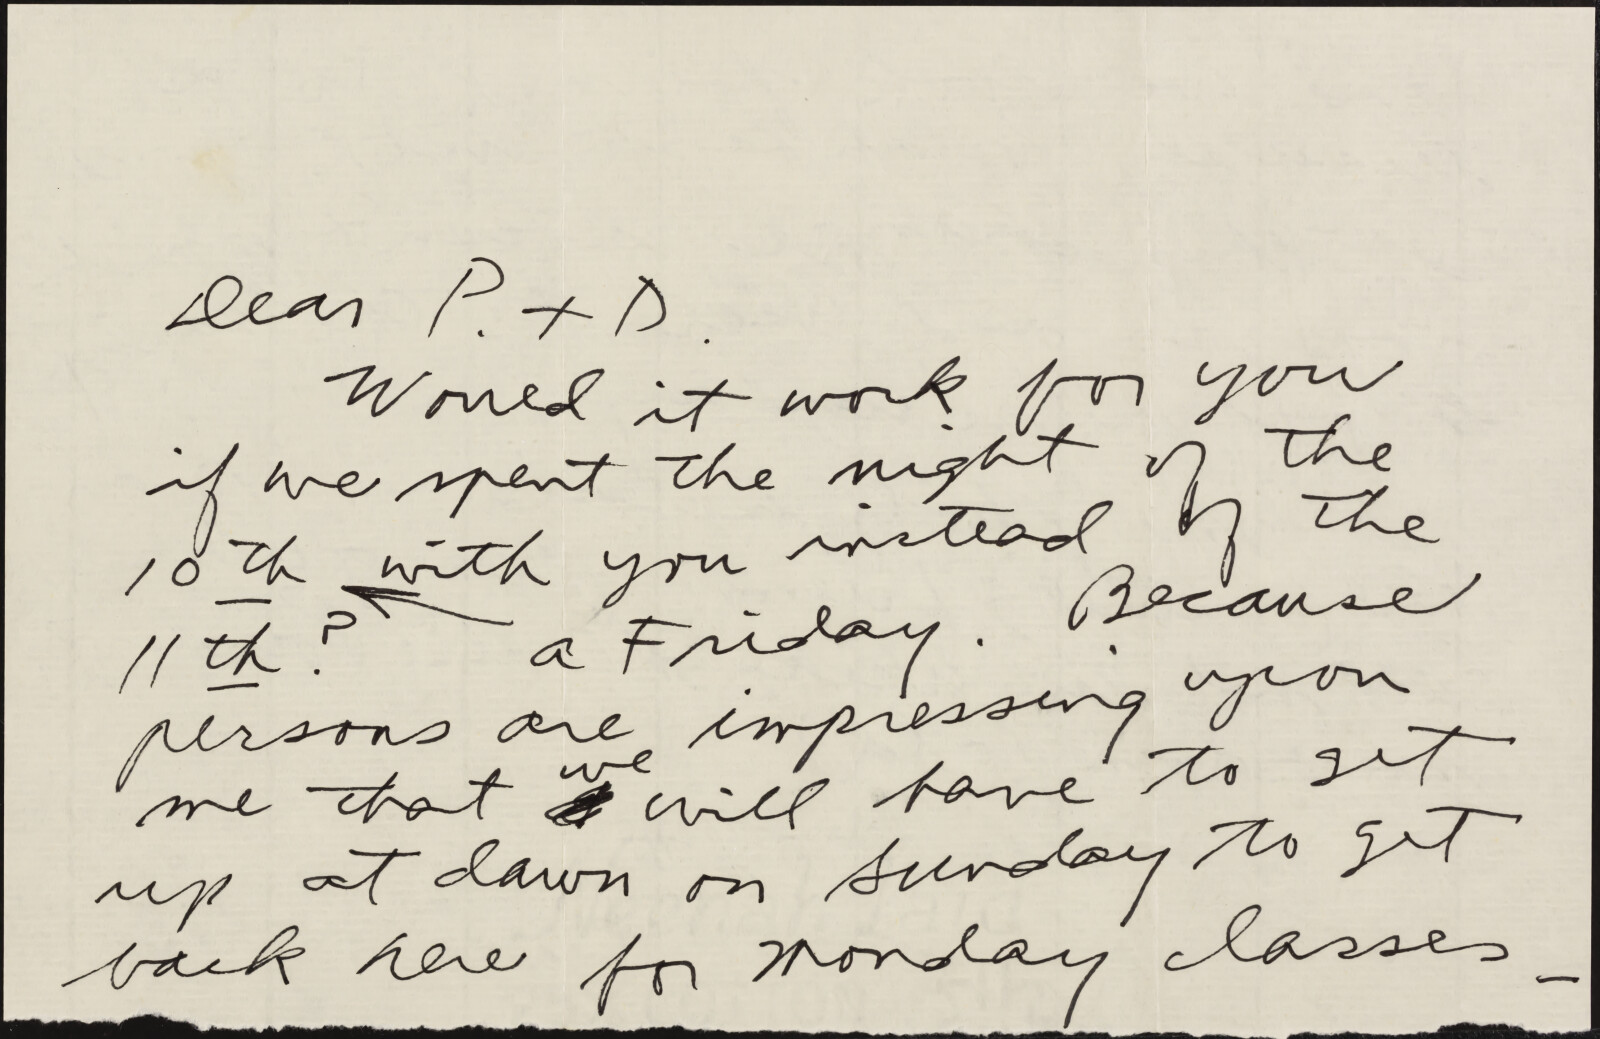 Dear P. + D.
Would it work for you
if we spent the night of the
10th with you instead of the
11th? a Friday. Because
persons are impressing upon
me that we will have to get
up at dawn on Sunday to get
back here for Monday classes –